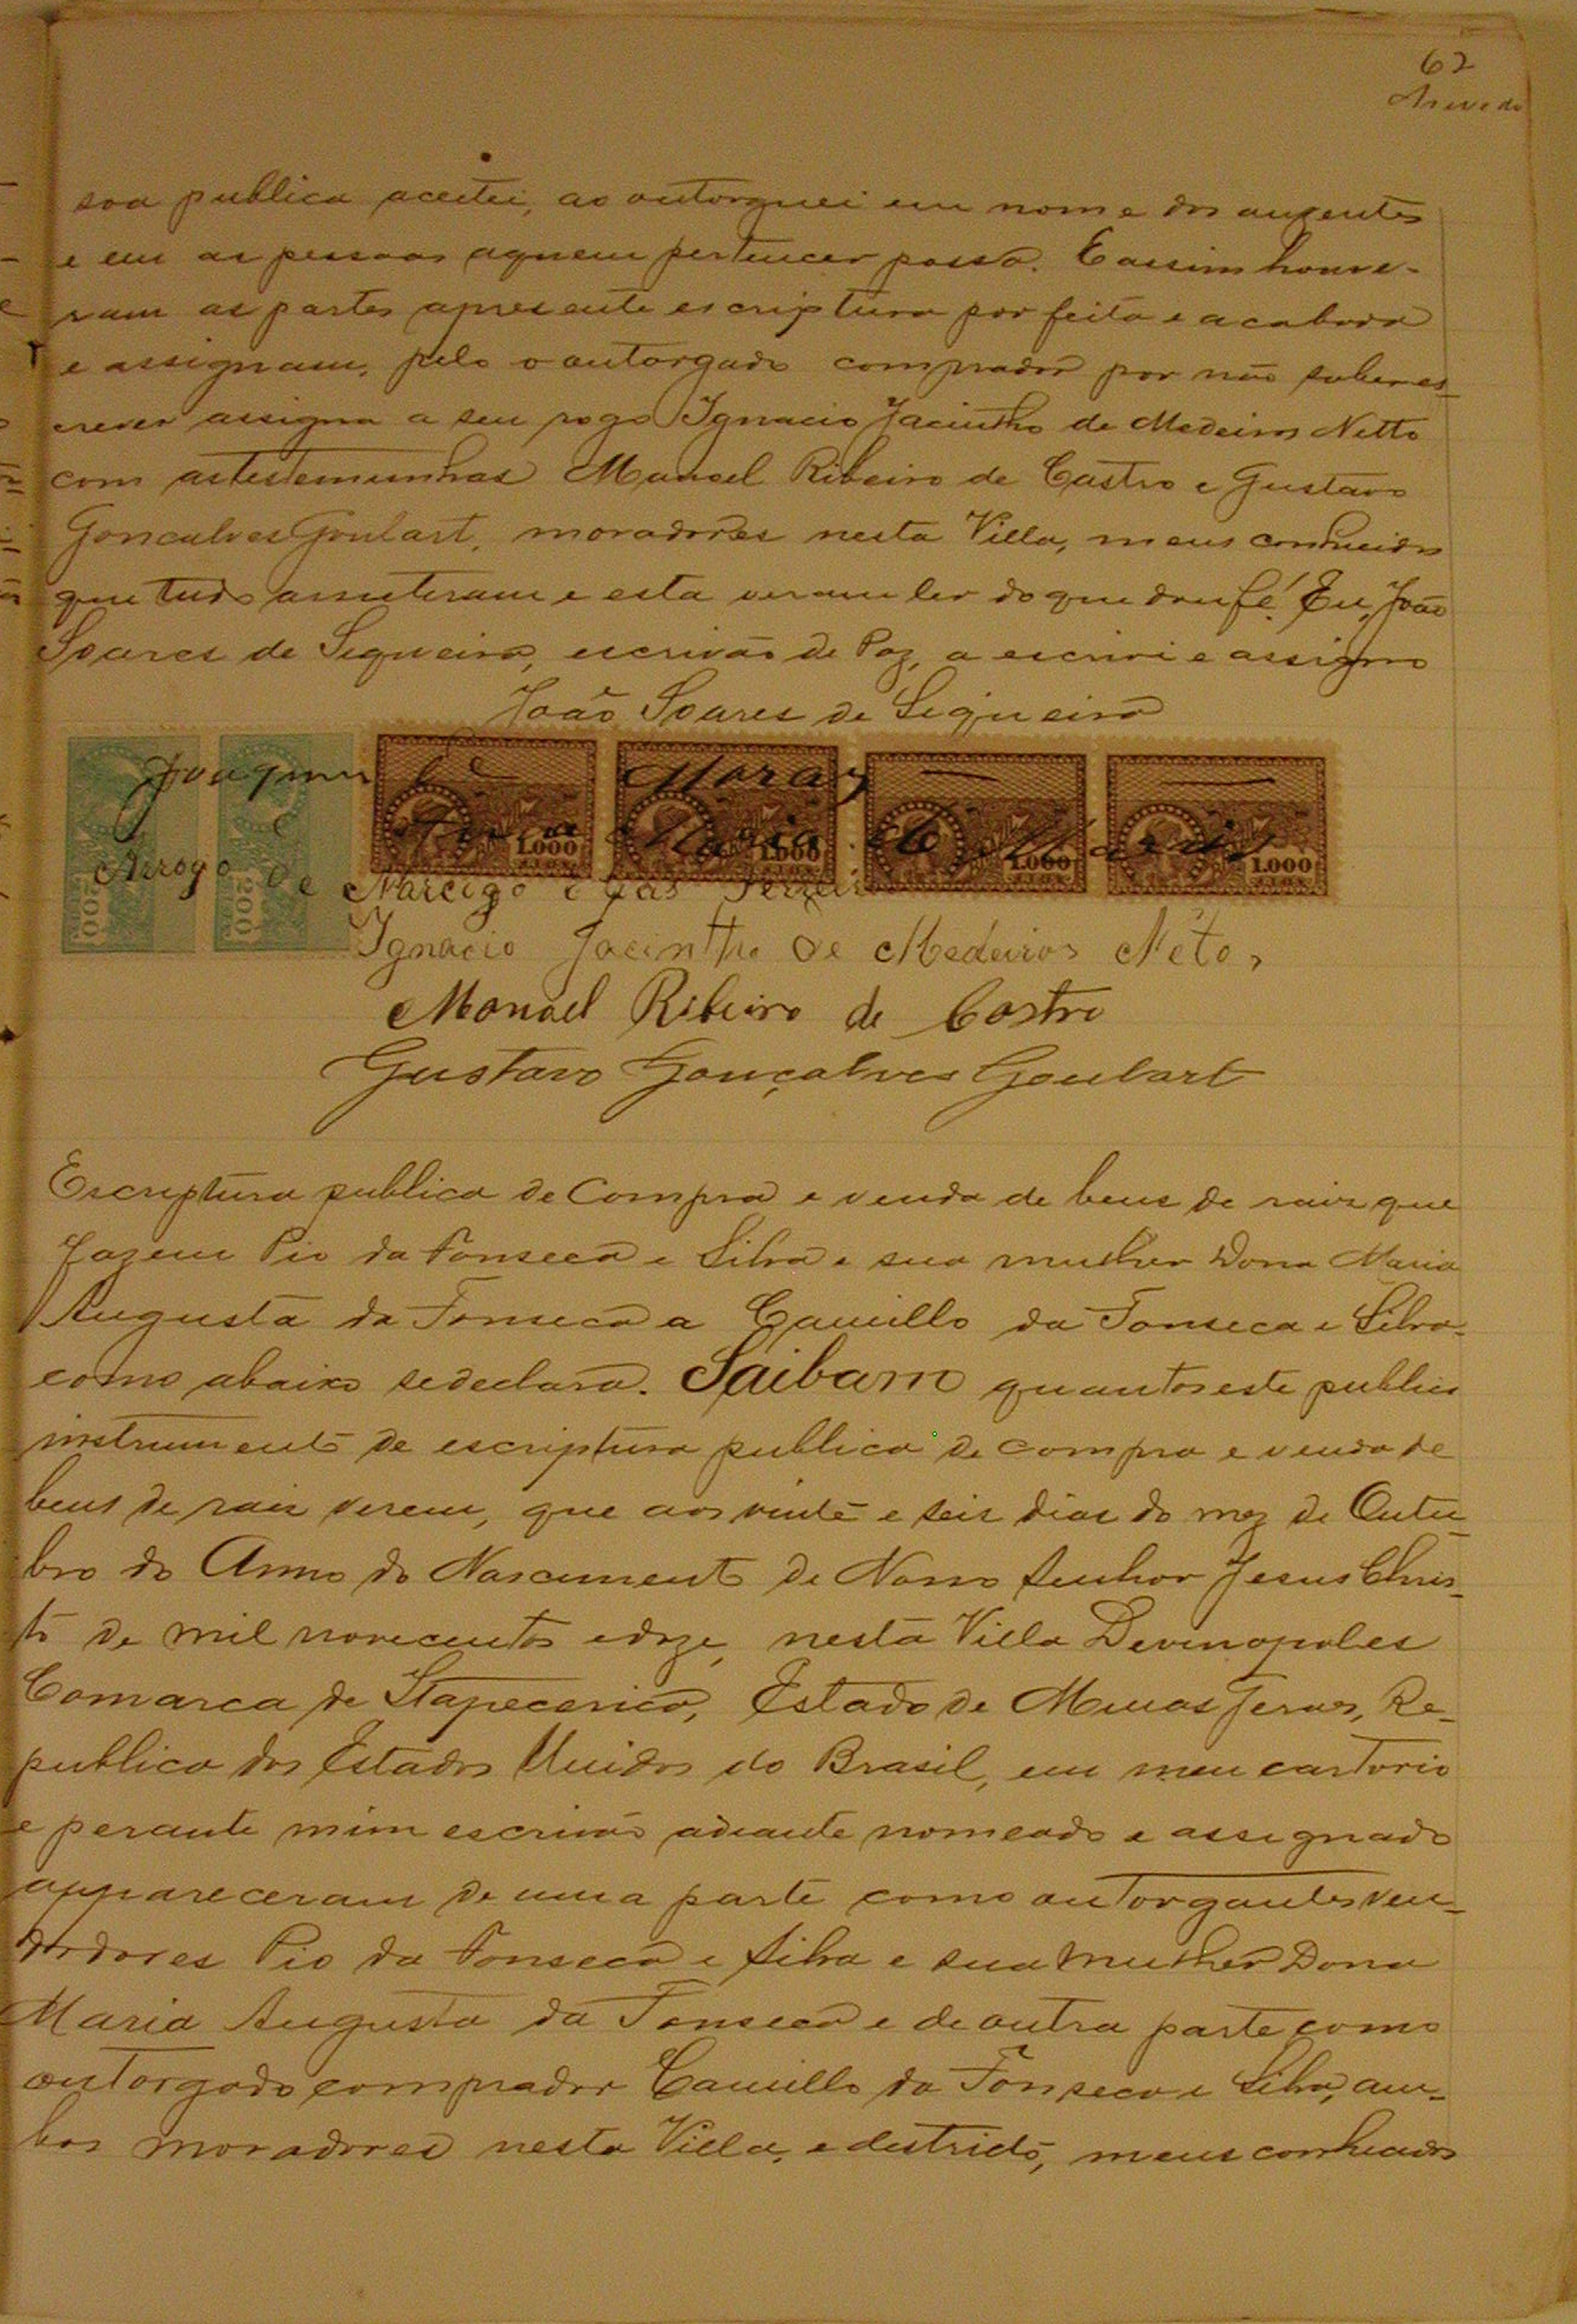 62
Azevedo
soa publica aceitei, as outorguei em nome dos ausentes
e em as pessoas aquem pertencer possa. E assim houve-
ram as partes apresente escriptura por feita e acabada
e assignam, pelo o outorgado comprador por não saber es-
crever assigna a seu rogo Ignacio Jacintho de Medeiros Netto
com astestemunhas Manoel Ribeiro de Castro e Gustavo
Goncalves Goulart, moradores nesta Villa, meus conhecidos
que tudo assestiram e esta veram ler do que dou fé. Eu, João
Soares de Siqueira, escrivão de Paz, a escrivi e assigno
João Soares de Siqueira
Joaquim Moraz
Maria
1.000 1.000 1.000 1.000
Arroyo de Narcizo
200 200
Ignacio Jacintho de Medeiros Néto,
Manoel Ribeiro de Castro
Gustavo Gonçalves Goulart
Escriptura publica de Compra e venda de bens de raiz que
fazem Pio da Fonseca e Silva e sua mulher Dona Maria
Augusta da Fonseca a Camillo da Fonseca e Silva-
como abaixo sedeclara. Saibam quantos este publico
instrumento de escriptura publica de compra e venda de
bens de raiz verem, que aos vinte e seis dias do mez de Outu-
bro do Anno do Nascimento de Nosso Senhor Jesus Chris-
to de mil novecentos edoze, nesta Villa Devinopoles
Comarca de Itapecerica, Estado de Minas Geraes, Re-
publica dos Estados Unidos do Brasil, em meu cartorio
e perante mim escrivão adiante nomeado e assignado
appareceram de uma parte como outorgantes ven-
dedores Pio da Fonseca e Silva e sua mulher Dona
Maria Augusta da Fonseca e de outra parte como
outorgado comprador Camillo da Fonseca e Silva, am-
bos moradores nesta Villa, e destricto, meus conhecidos